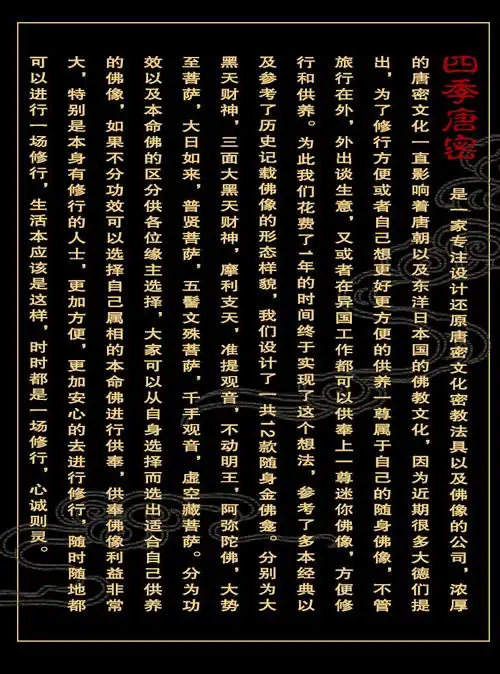 四季唐密
是一家专注设计还原唐密文化密教法具以及佛像的公司，浓厚
的唐密文化一直影响着唐朝以及东洋日本国的佛教文化，因为近期很多大德们提
出，为了修行方便或者自己想更好更方便的供养一尊属于自己的随身佛像，不管
旅行在外，外出谈生意，又或者在异国工作都可以供奉上一尊迷你佛像，方便修
行和供养。为此我们花费了1年的时间终于实现了这个想法，参考了多本经典以
及参考了历史记载佛像的形态样貌，我们设计了一共12款随身金佛龛。分别为大
黑天财神，三面大黑天财神，摩利支天，准提观音，不动明王，阿弥陀佛，大势
至菩萨，大日如来，普贤菩萨，五髻文殊菩萨，千手观音，虚空藏菩萨。分为功
效以及本命佛的区分供各位缘主选择，大家可以从自身选择而选出适合自己供养
的佛像，如果不分功效可以选择自己属相的本命佛进行供奉，供奉佛像利益非常
大，特别是本身有修行的人士，更加方便，更加安心的去进行修行，随时随地都
可以进行一场修行，生活本应该是这样，时时都是一场修行，心诚则灵。